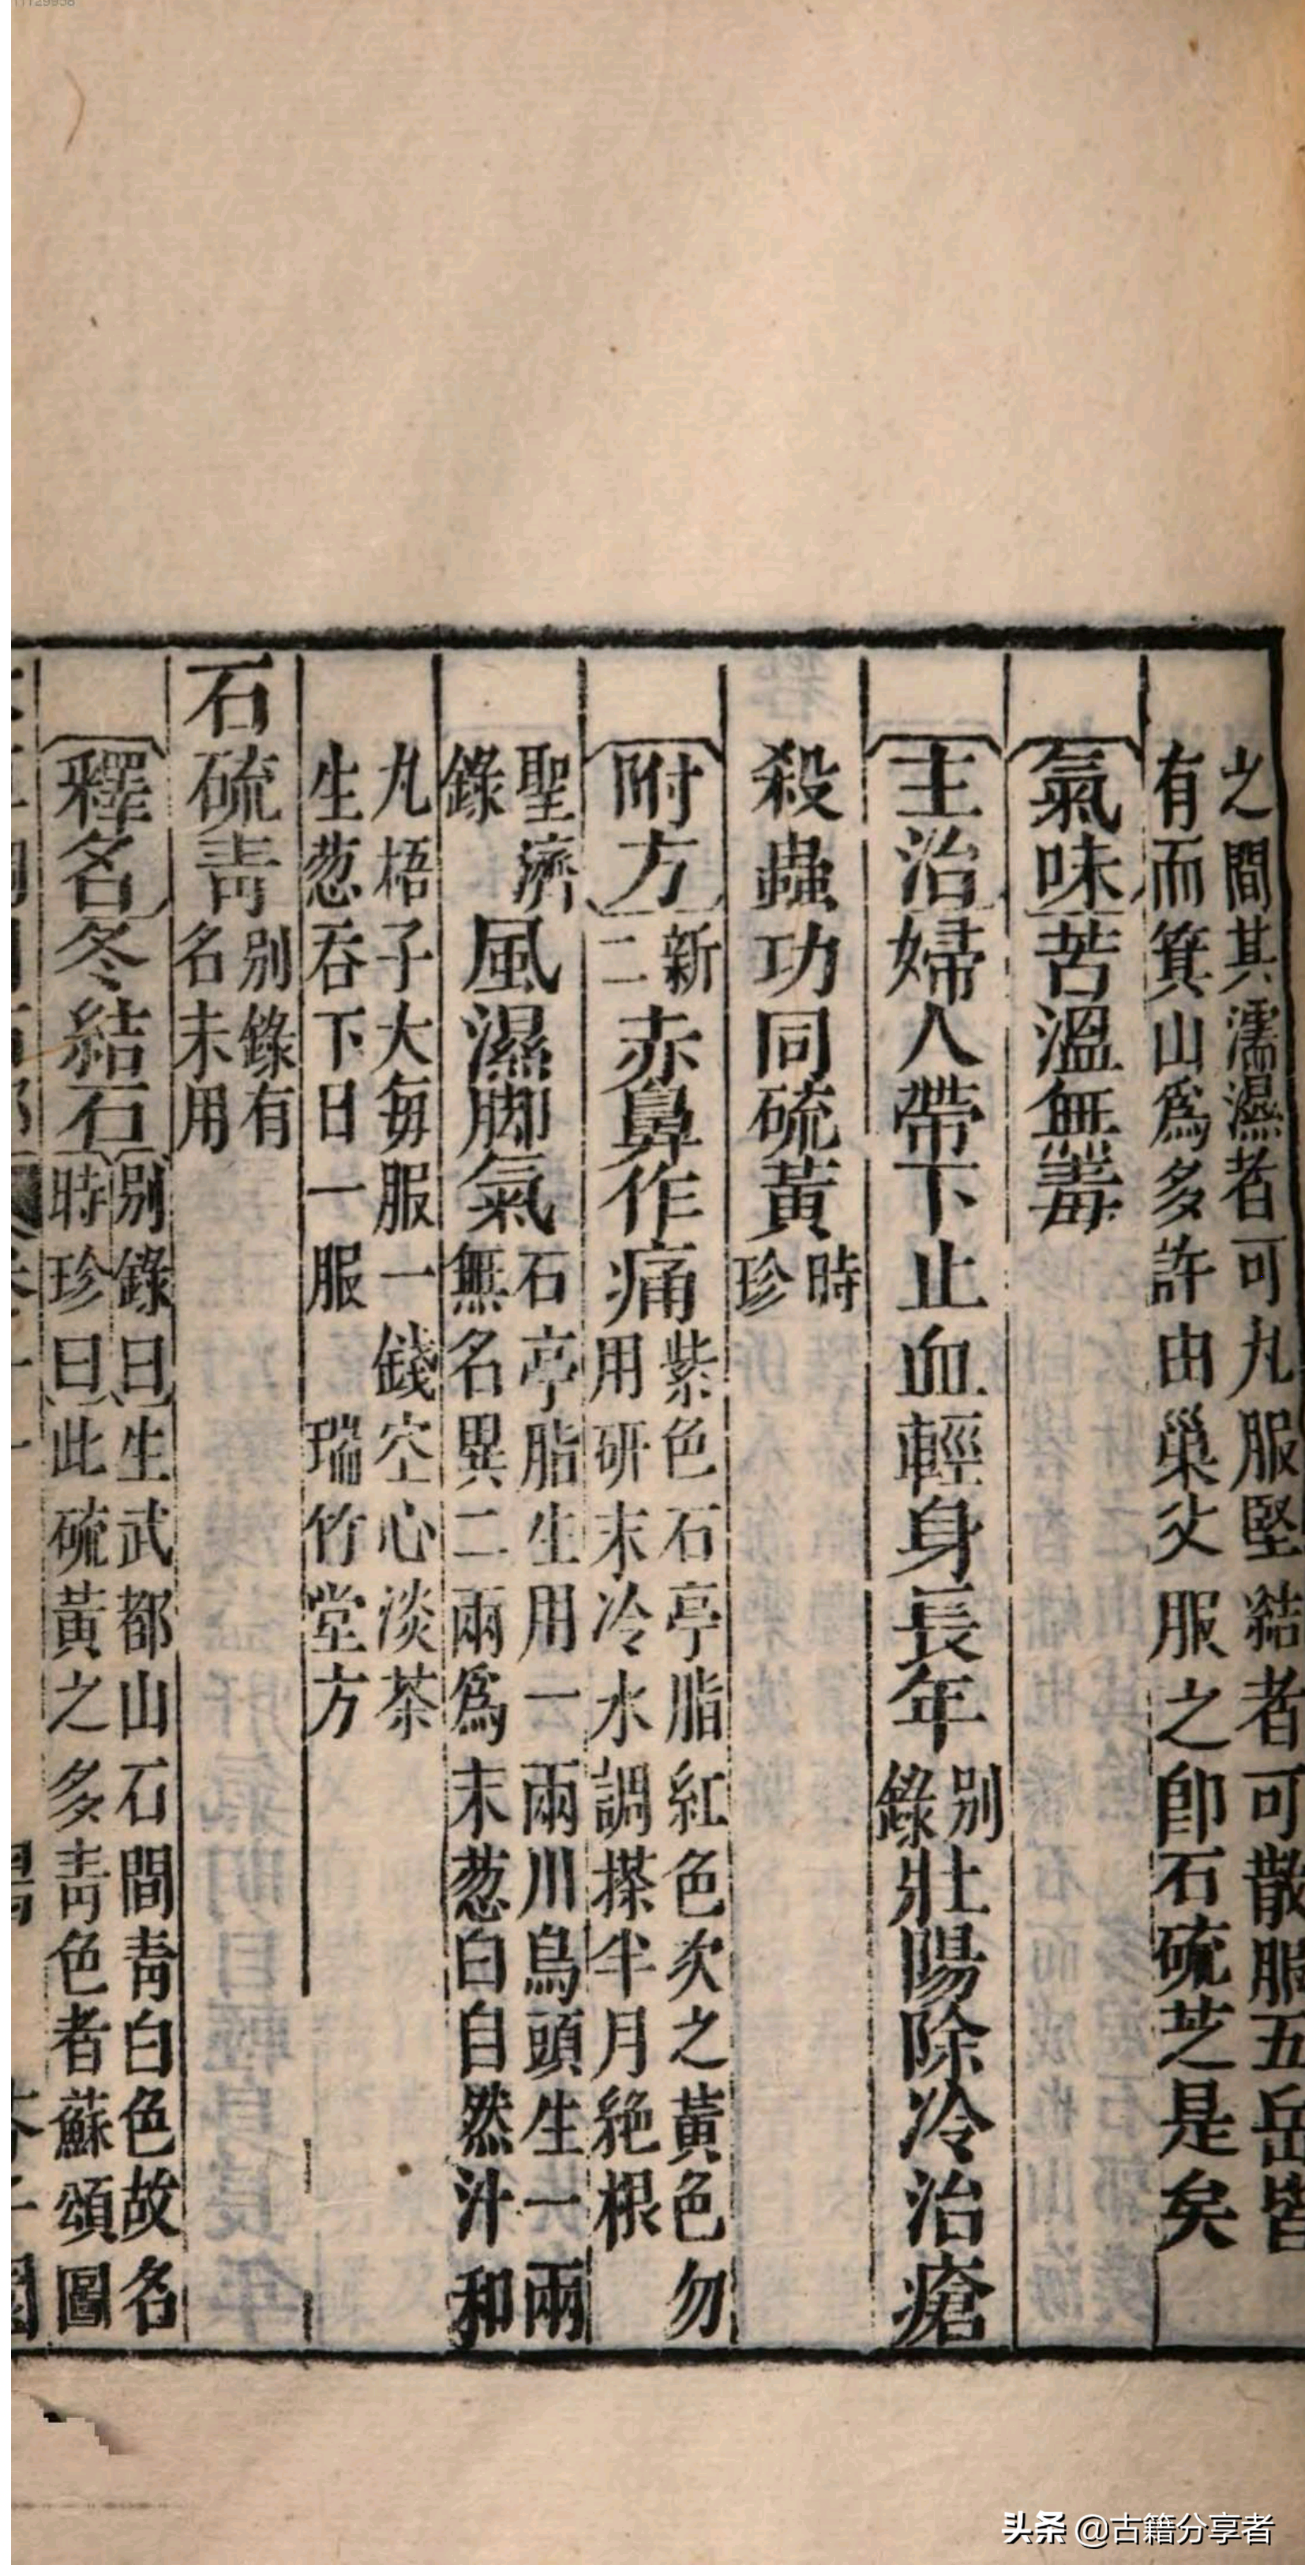 之間其濡濕者可丸服堅結者可散服五岳皆
有而箕山爲多許由巢父服之卽石硫芝是矣
氣味苦溫無毒
主治婦人帶下止血輕身長年別錄壯陽除冷治瘡
殺蟲功同硫黃時珍
附方新二赤鼻作痛紫色石亭脂紅色次之黃色勿
用研末冷水調搽半月絶根
聖濟錄風濕脚氣石亭脂生用一兩川烏頭生一兩
無名異二兩爲末葱白自然汁和
丸梧子大每服一錢空心淡茶
生葱吞下日一服 瑞竹堂方
石硫靑別錄有名未用
釋名冬結石別錄曰生武都山石間靑白色故名
時珍曰此硫黃之多靑色者蘇頌圖
頭条 @古籍分享者
11129958